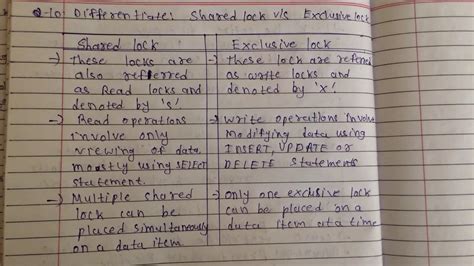 Q-10 Differentiate: Shared lock v/s Exclusive lock
Shared lock
→) These locks are
also referred
as Read locks and
denoted by 's'.
→) Read operations
involve only
viewing of data,
mostly using SELECT
statement.
→) Multiple shared
lock can be
placed simultaneously
on a data item
Exclusive lock
→) These lock are referred
as write locks and
denoted by 'x'.
→) Write operations involve
modifying data using
INSERT, UPDATE or
DELETE statements
→) only one exclusive lock
can be placed on a
data item at a time